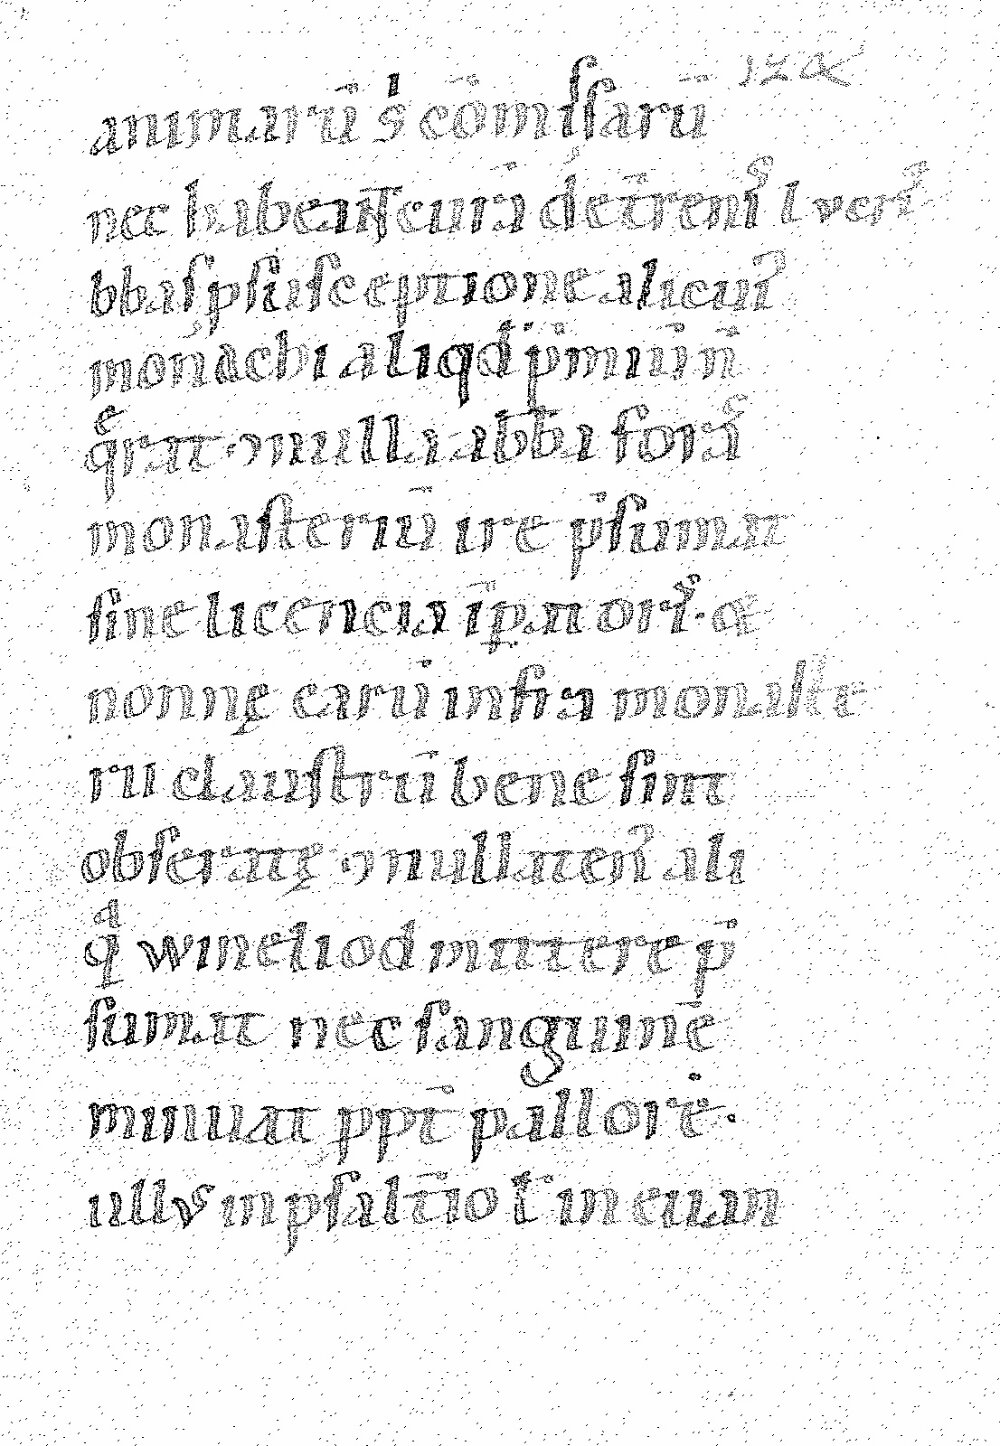 124
animarū s̄ cōmissarū
nec habeant curā de t̄renis l ver
bbas p susceptione alicui⁹
monachi aliqd̄ p̄miū n̄
q̄rat · ⁊ nulla abb̄a foras
monasteriū ire p̄sumat
sine licencia īp̄atoris · &
nonnę earū infra monaste
rii claustrū bene sint
obseratę ⁊ nullaten⁹ ali
q̄ wineliod mittere p̄
sumat nec sanguinē
minuat ppt̄ pallorē ·
ullus in psalt̄io l̄ in euan